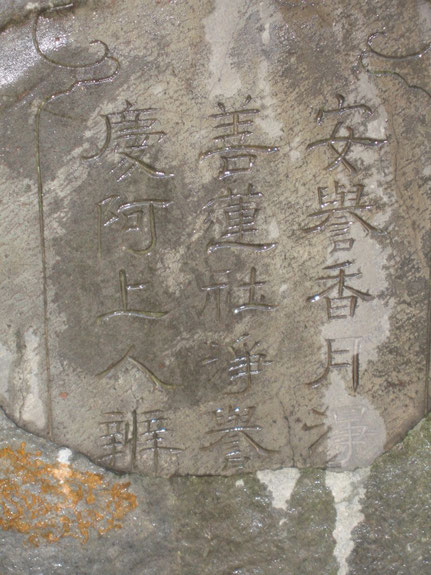 安譽香月淨
善蓮社淨譽
慶阿上人辨